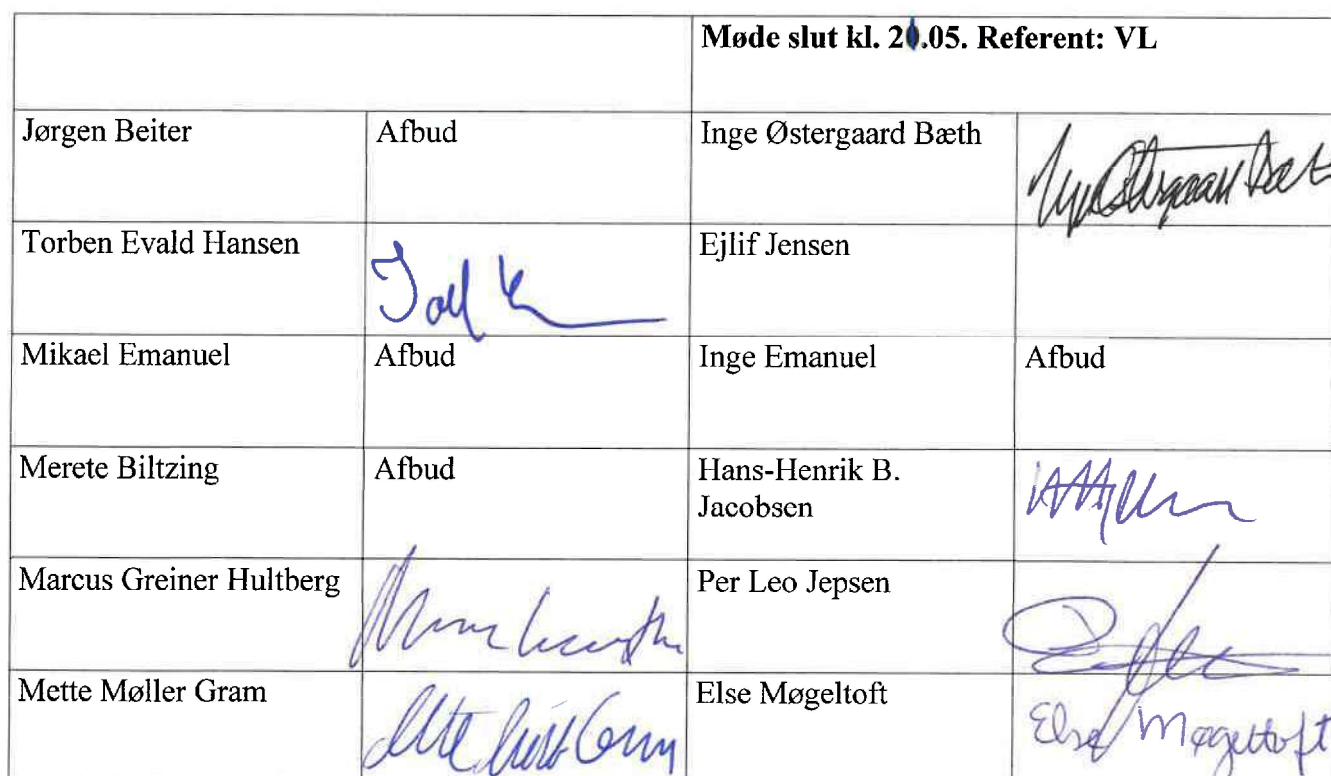 Møde slut kl. 21.05. Referent: VL
Jørgen Beiter Afbud Inge Østergaard Bæth
Torben Evald Hansen Ejlif Jensen
Mikael Emanuel Afbud Inge Emanuel Afbud
Merete Biltzing Afbud Hans-Henrik B.
Jacobsen
Marcus Greiner Hultberg Per Leo Jepsen
Mette Møller Gram Else Møgeltoft Else Møgeltoft